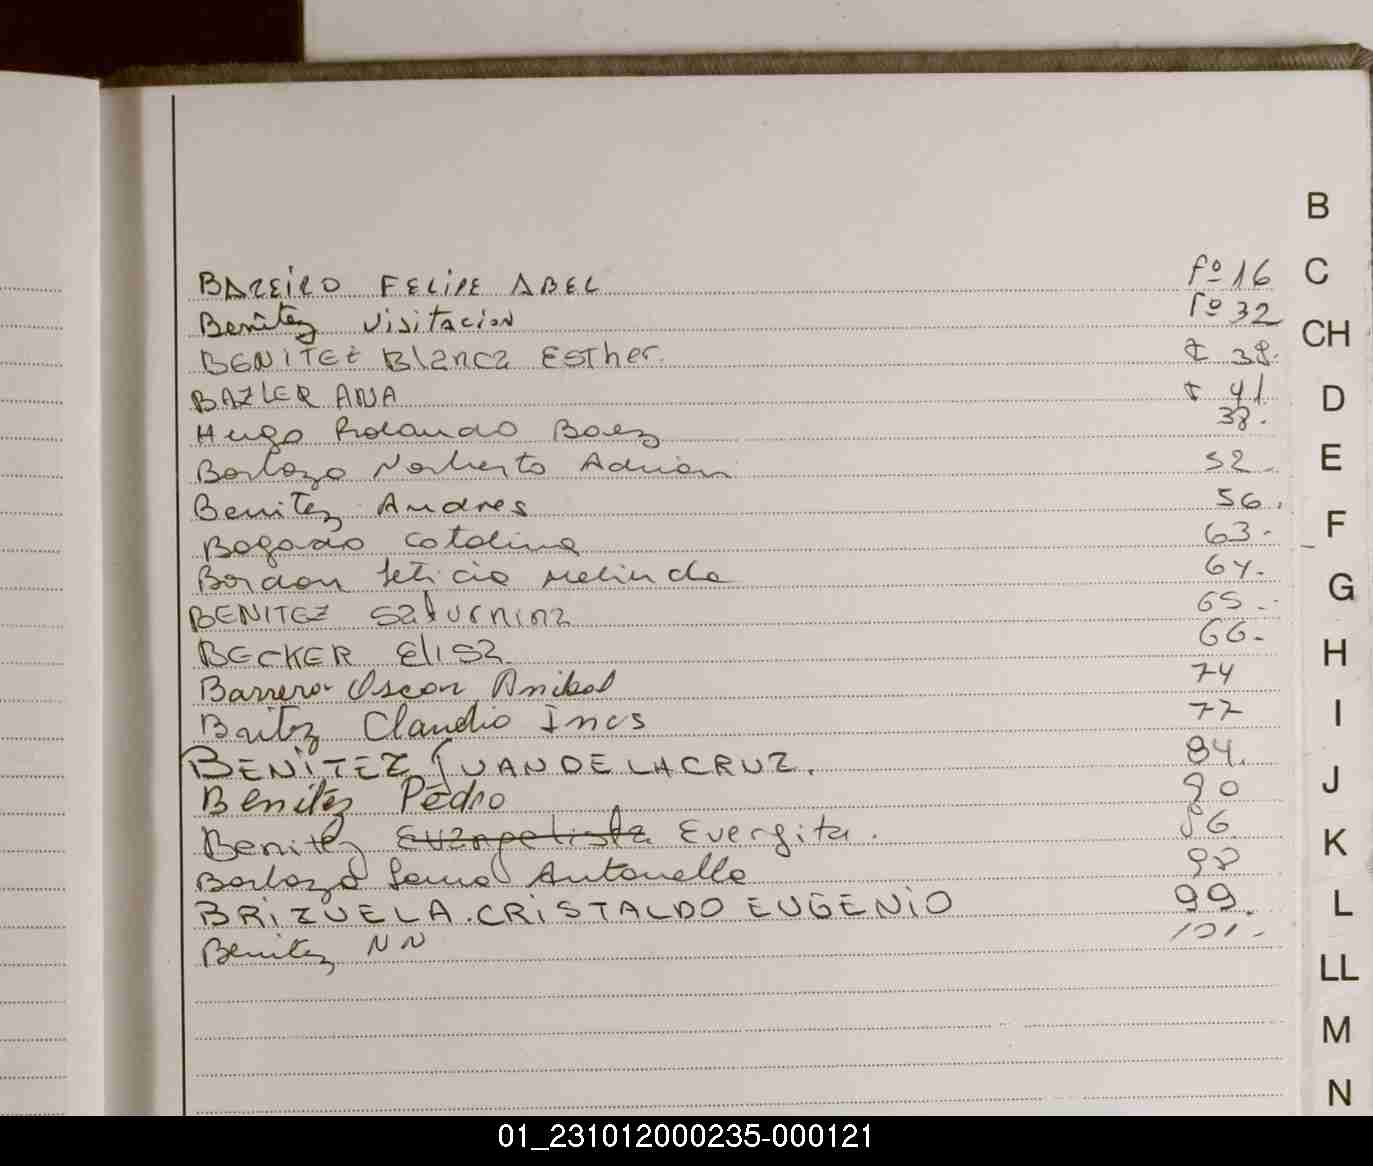 BAREIRO FELIPE ABEL fº 16
Benitez Visitacion Fº 32
BENITEZ Blanca Esther. 38.
BAZLER ANA 41.
Hugo Rolando Baez 38.
Barboza Norberto Adrian 52
Benitez Andres 56.
Bogado Catalina 63.
Bordon Leticia Melinda 64.
BENITEZ Saturnina 65.
BECKER Elisa 66.
Barrero Oscar Anibal 74
Britez Claudio Ines 77
BENITEZ JUAN DE LA CRUZ. 84.
Benitez Pedro 90
Benitez Evangelista Evergita. 86
Barboza Antonella 98
BRIZUELA CRISTALDO EUGENIO 99.
Benitez NN 101.
B
C
CH
D
E
F
G
H
I
J
K
L
LL
M
N
01_231012000235-000121